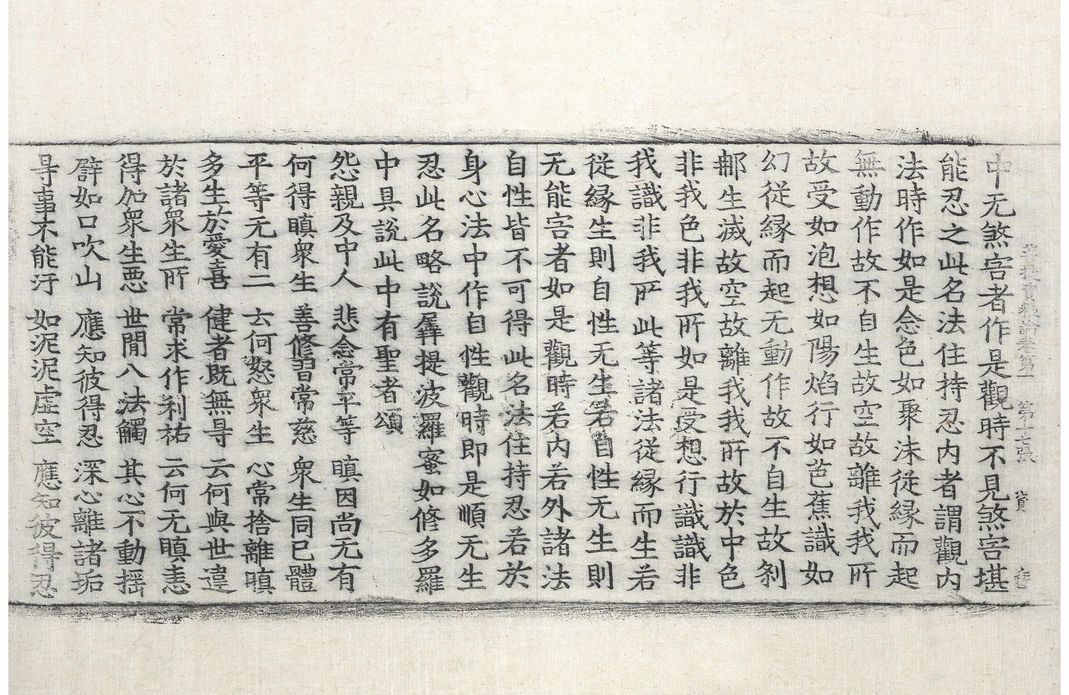 論卷第 第十七張 資
中无煞害者作是觀時不見煞害堪
能忍之此名法住持忍内者謂觀内
法時作如是念色如聚沫從緣而起
無動作故不自生故空故離我我所
故受如泡想如陽焰行如芭蕉識如
幻從緣而起无動作故不自生故刹
那生滅故空故離我我所故於中色
非我色非我所如是受想行識識非
我識非我所此等諸法從緣而生若
從緣生則自性无生若自性无生則
无能害者如是觀時若内若外諸法
自性皆不可得此名法住持忍若於
身心法中作自性觀時即是順无生
忍此名略說羼提波羅蜜如修多羅
中具說此中有聖者頌
怨親及中人 悲念常平等 瞋因尚无有
何得瞋衆生 善修習常慈 衆生同己體
平等无有二 云何怒衆生 心常捨離瞋
多生於愛喜 健者既無㝵 云何與世違
於諸衆生所 常求作利祐 云何无瞋恚
得加衆生惡 世間八法觸 其心不動搖
譬如口吹山 應知彼得忍 深心離諸垢
㝵事不能汙 如泥泥虛空 應知彼得忍